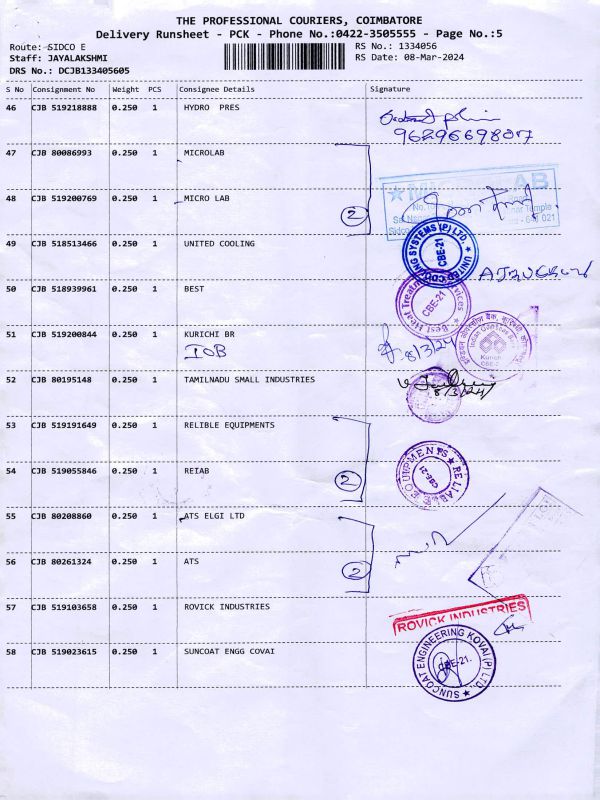 THE PROFESSIONAL COURIERS, COIMBATORE
Delivery Runsheet - PCK - Phone No.:0422-3505555 - Page No.:5
Route: SIDCO E
Staff: JAYALAKSHMI
DRS No.: DCJB133405605
RS No.: 1334056
RS Date: 08-Mar-2024
S No Consignment No Weight PCS Consignee Details Signature
46 CJB 519218888 0.250 1 HYDRO PRES
9629669807
47 CJB 80086993 0.250 1 MICROLAB
48 CJB 519200769 0.250 1 MICRO LAB
2
49 CJB 518513466 0.250 1 UNITED COOLING
UNITED COOLING SYSTEMS (P) LTD.
CBE-21
50 CJB 518939961 0.250 1 BEST
Best Heat Treatment Services
CBE-21
51 CJB 519200844 0.250 1 KURICHI BR
IOB
8/3/24
Indian Overseas Bank
52 CJB 80195148 0.250 1 TAMILNADU SMALL INDUSTRIES
8/3/24
53 CJB 519191649 0.250 1 RELIBLE EQUIPMENTS
54 CJB 519055846 0.250 1 REIAB
2
RELIABLE EQUIPMENTS
CBE-21
55 CJB 80208860 0.250 1 ATS ELGI LTD
56 CJB 80261324 0.250 1 ATS
2
57 CJB 519103658 0.250 1 ROVICK INDUSTRIES
ROVICK INDUSTRIES
58 CJB 519023615 0.250 1 SUNCOAT ENGG COVAI
SUNCOAT ENGINEERING KOVAI (P) LTD.
CBE-21.